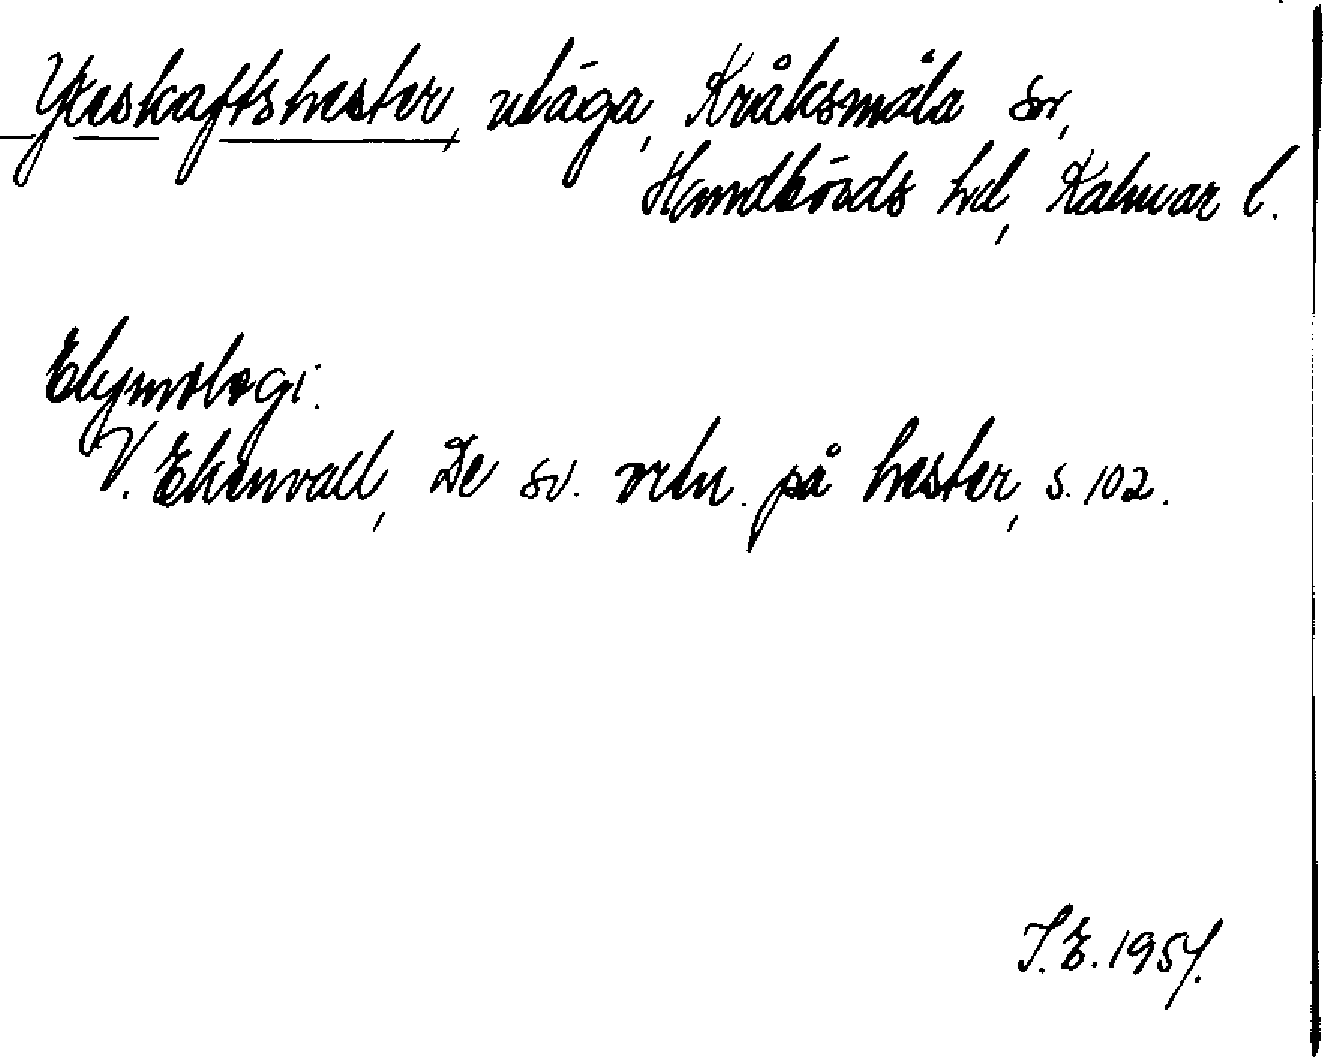 Yxeskaftshester, utäga, Kråksmåla sn,
Handbörds hd, Kalmar l.
Etymologi:
V. Ekenvall, De sv. ortn. på hester, s. 102.
I.E. 1957.